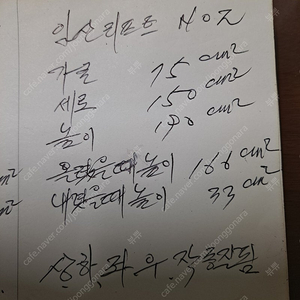 임산리프트 NO2
가로 75 cm²
세로 150 cm²
높이 190 cm²
올렸을때 높이 166 cm²
내렸을때 높이 33 cm²
상하, 좌우 작동잘됨